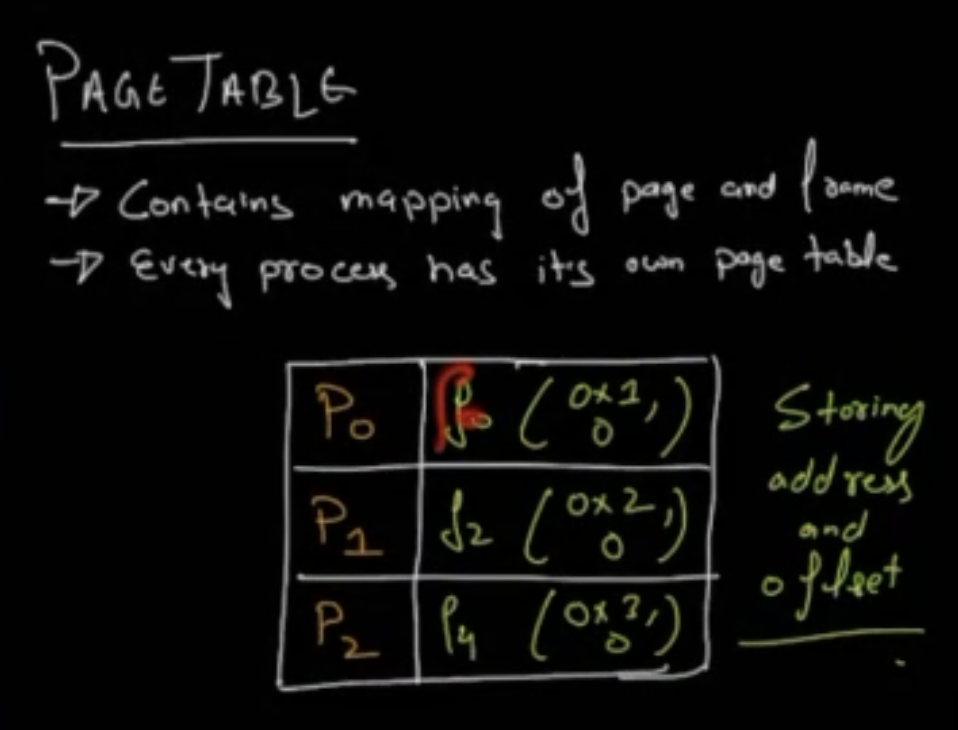 PAGE TABLE
→ Contains mapping of page and frame
→ Every process has it's own page table
P0 f0 (0x1, 0)
P1 f2 (0x2, 0)
P2 f4 (0x3, 0)
Storing
address
and
offset